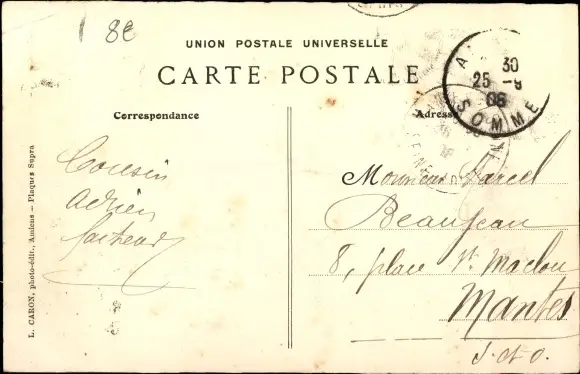 8€
UNION POSTALE UNIVERSELLE
CARTE POSTALE
30
25 -9
06
SOMME
Correspondance
Adresse
Cousin
Adrien
Monsieur Marcel
Beaujean
8, place St Maclou
Mantes
S. et O.
L. CARON, photo-édit., Amiens — Plaques Supra